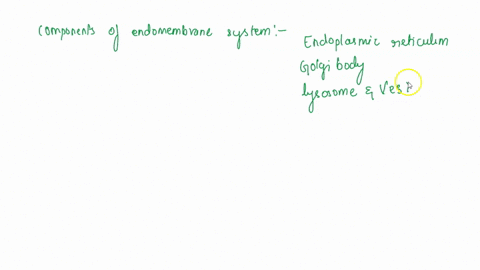 Components of endomembrane system:-
Endoplasmic reticulum
Golgi body
lysosome & Ves